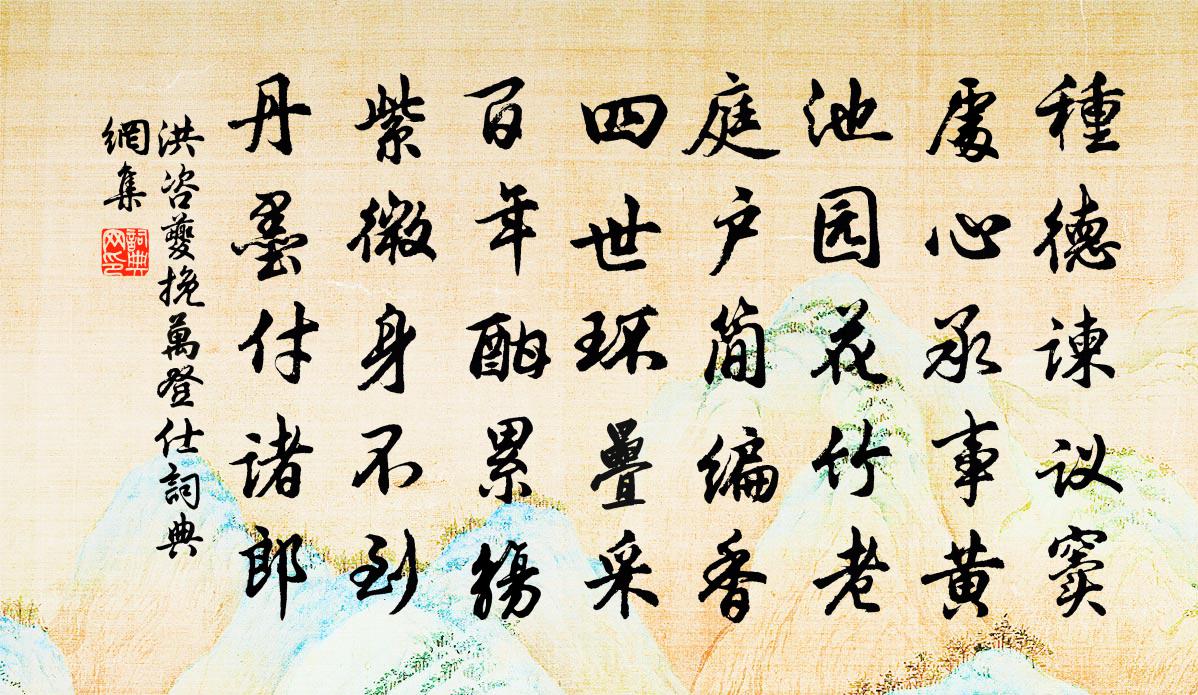 種德谏议窦
處心承事黄
池园花竹老
庭户简编香
四世环疊采
百年酣累觴
紫微身不到
丹墨付诸郎
洪咨夔挽萬登仕詞典
網集
詞典
网印